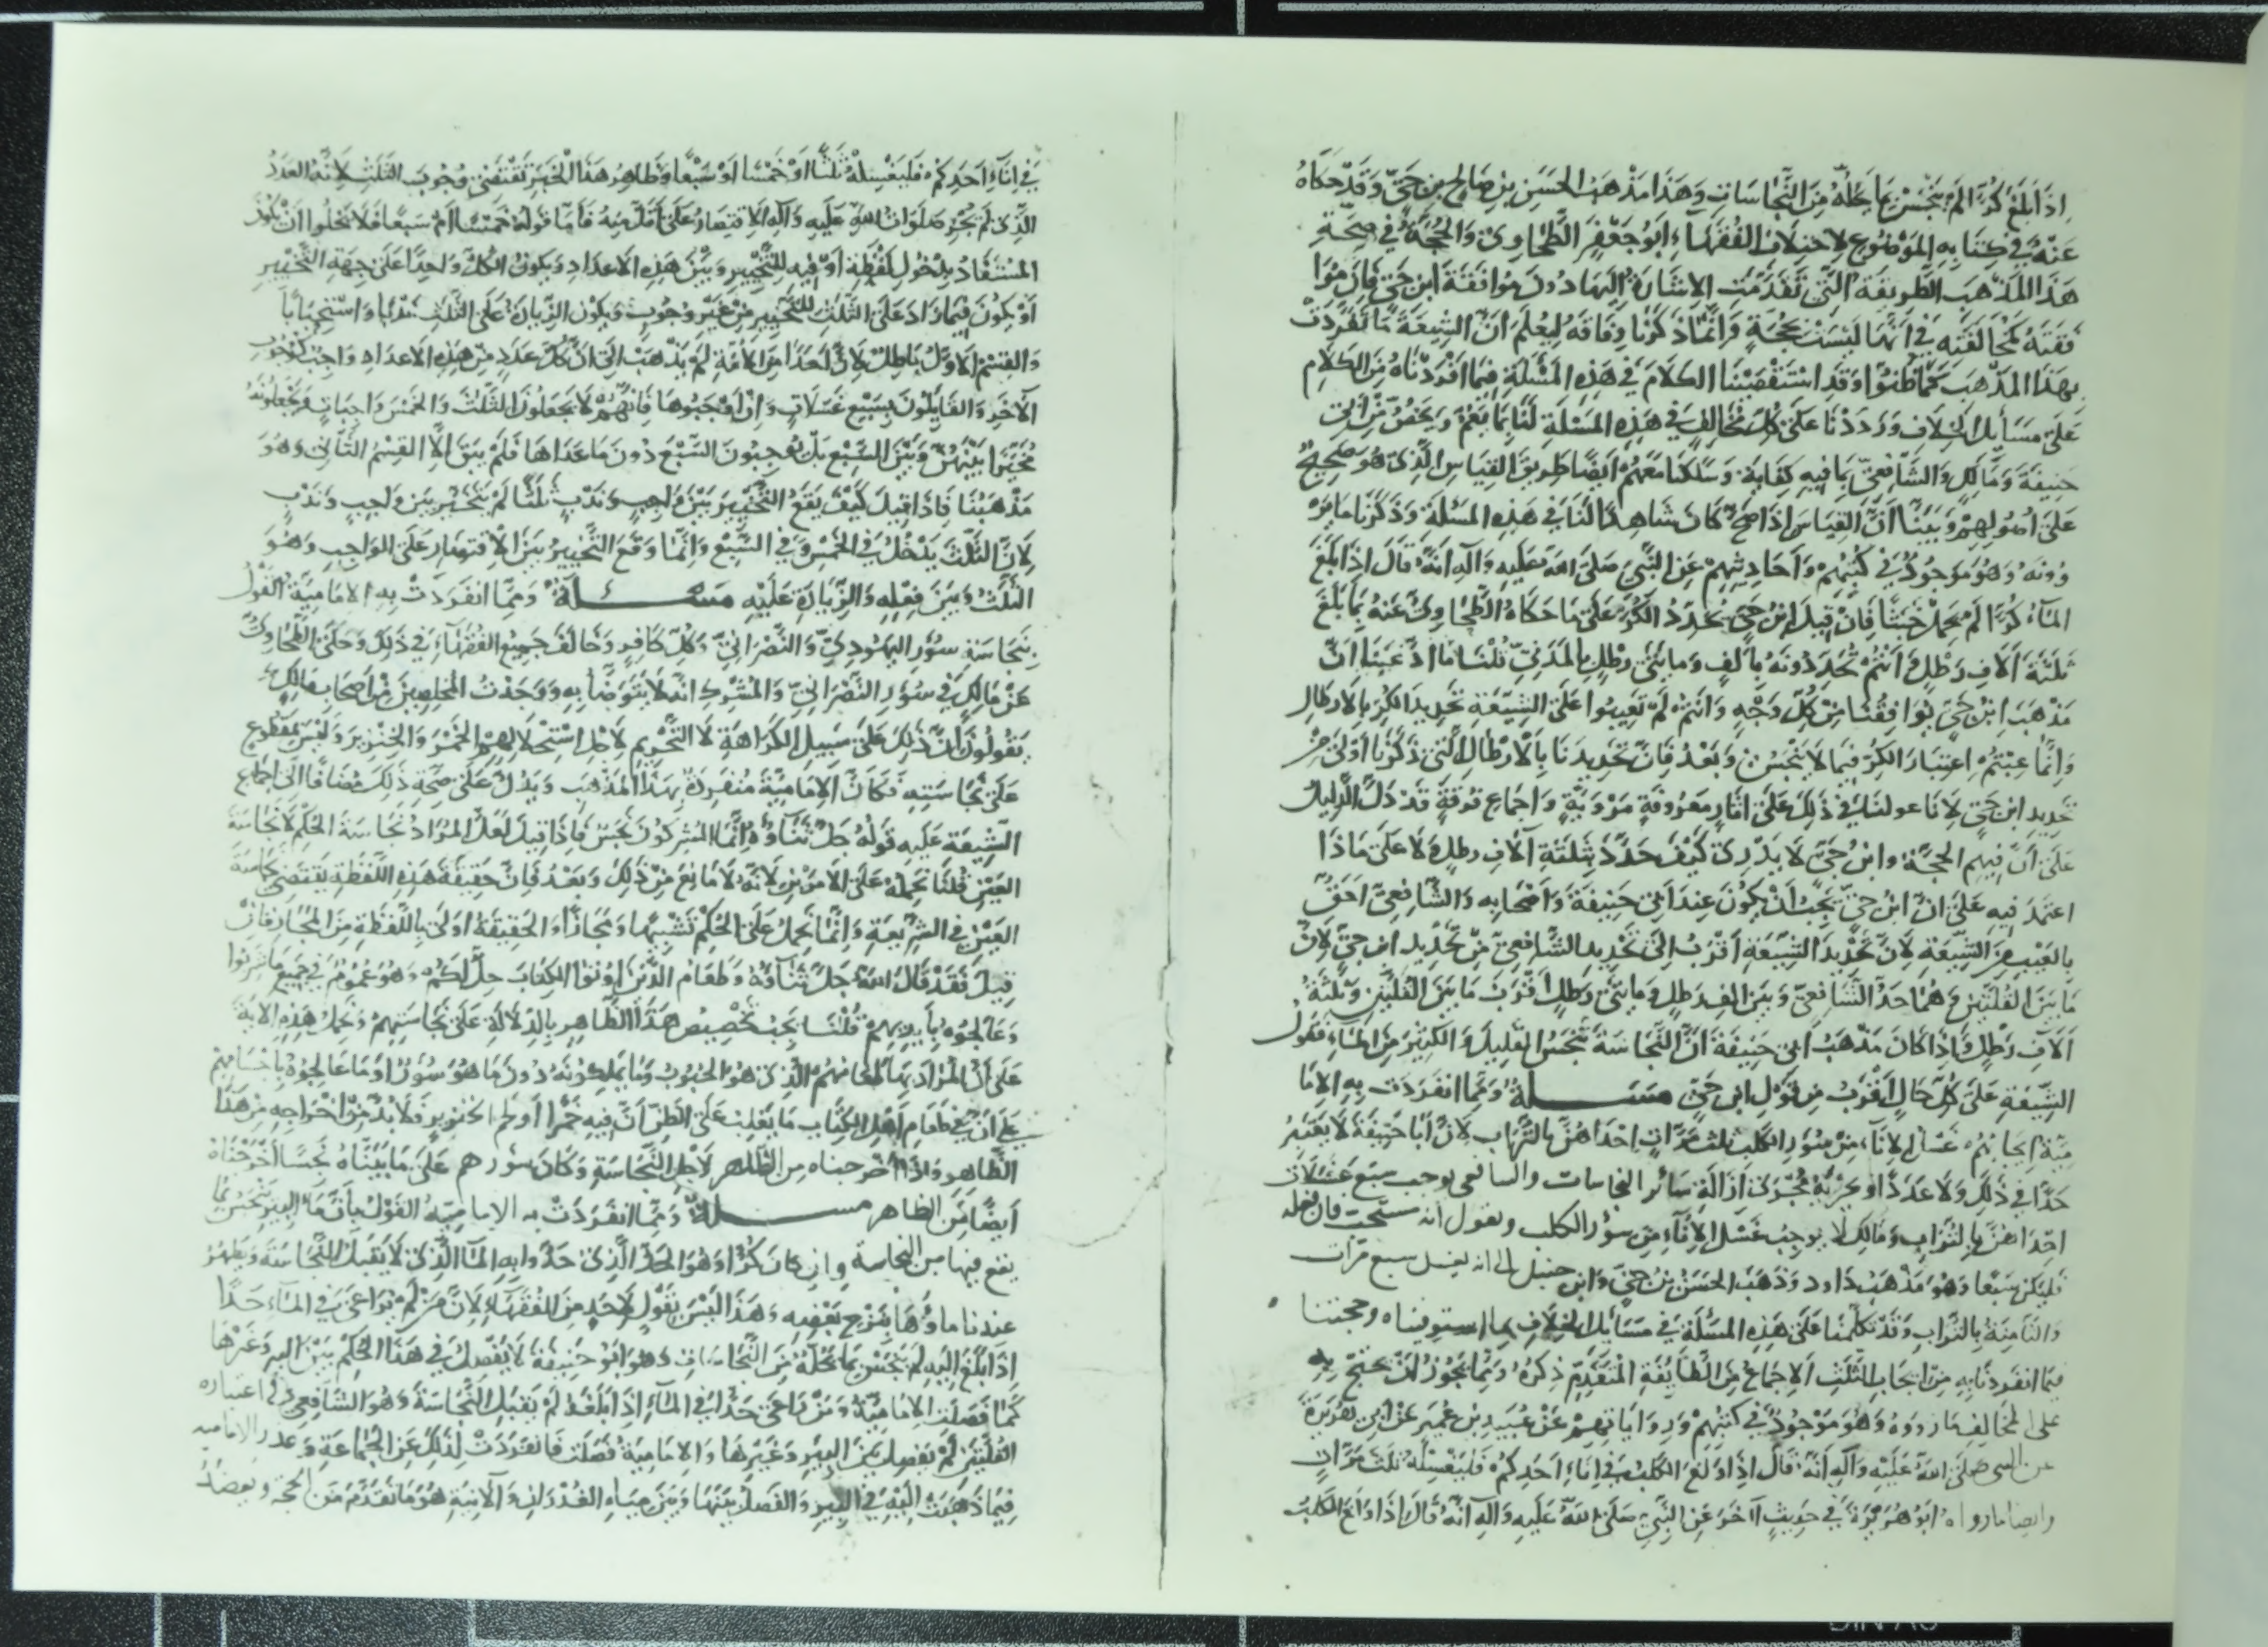 اذا بلغ كرا لم ينجس بما يحله من النجاسات وهذا مذهب الحسن بن صالح بن حي وقد حكاه
عنه في كتابه الموضوع لاختلاف الفقهاء ابو جعفر الطحاوي والحجة في صحة
هذا المذهب الطريقة التي تقدمت الاشارة اليها دون موافقة ابن حي فان موا
فقته كمخالفته في انها ليست بحجة وانما ذكرنا وفاقه ليعلم ان الشيعة ما تفردت
بهذا المذهب كما ظنوا وقد استقصينا الكلام في هذه المسئلة فيما افردناه من الكلام
على مسايل الخلاف ورددنا على كل مخالف في هذه المسئلة لنا بما يعم ويخص من ابي
حنيفة ومالك والشافعي بما فيه كفاية وسلكنا معهم ايضا طريق القياس الذي هو صحيح
على اصولهم وبينا ان القياس اذا صح كان شاهدا لنا في هذه المسئلة وذكرنا ما ير
وونه وهو موجود في كتبهم واحاديثهم عن النبي صلى الله عليه وآله انه قال اذا بلغ
الماء كرا لم يحمل خبثا فان قيل ابن حي يحدد الكر على ما حكاه الطحاوي عنه بما بلغ
ثلثة آلاف رطل وانتم تحددونه بألف ومايتي رطل بالمدني قلنا ما ادعينا ان
مذهب ابن حي يوافقنا من كل وجه وانتم لم تعيبوا على الشيعة تحديد الكر بالارطال
وانما عبتم اعتبار الكر فيما لا ينجس وبعد فان تحديدنا بالارطال التي ذكرنا اولى من
تحديد ابن حي لانا عولنا في ذلك على اثار معروفة مروية واجماع فرقة قد دل الدليل
على ان فيهم الحجة وابن حي لا يدرى كيف حدد بثلثة آلاف رطل ولا على ماذا
اعتمد فيه على ان ابن حي يجب ان يكون عند ابي حنيفة واصحابه والشافعي احق
بالعيب من الشيعة لان تحديد الشيعة اقرب الى تحديد الشافعي من تحديد ابن حي لان
ما بين القلتين وهما حد الشافعي وبين الف رطل ومايتي رطل اقرب ما بين القلتين وثلثة
آلاف رطل واذا كان مذهب ابي حنيفة ان النجاسة تنجس القليل والكثير من الماء فقول
الشيعة على كل حال اقرب من قول ابن حي مسئلة ومما انفردت به الاما
مية ايجابهم غسل الاناء من سؤر الكلب ثلث مرات احداهن بالتراب لان ابا حنيفة لا يعتبر
حدا في ذلك ولا عددا ويجريه مجرى ازالة سائر النجاسات والشافعي يوجب سبع غسلات
احداهن بالتراب ومالك لا يوجب غسل الاناء من سؤر الكلب ويقول انه مستحب فان فعله
فليكن سبعا وهو مذهب داود وذهب الحسن بن حي وابن حنبل الى انه يغسل سبع مرات
والثامنة بالتراب وقد تكلمنا على هذه المسئلة في مسائل الخلاف بما استوفيناه وحجتنا
فيما انفردنا به من ايجاب الثلث الاجماع من الطايفة المتقدم ذكره ومما يجوز ان يحتج به
على المخالف ما رووه وهو موجود في كتبهم ورواياتهم عن عبيد بن عمير عن ابي هريرة
عن النبي صلى الله عليه وآله انه قال اذا ولغ الكلب في اناء احدكم فليغسله ثلث مرات
وايضا ما رواه ابو هريرة في حديث آخر عن النبي صلى الله عليه وآله انه قال اذا ولغ الكلب
في اناء احدكم فليغسله ثلثا او خمسا او سبعا وظاهر هذا الخبر يقتضي وجوب الثلث لانه العدد
الذي لم يجز صلوات الله عليه وآله الاقتصار على اقل منه فاما قوله خمسا او سبعا فلا يخلوا ان يكون
المستفاد بدخول لفظة او فيه للتخيير وبين هذه الاعداد ويكون الكل واحدا على جهة التخيير
او يكون فيما زاد على الثلث للتخيير من غير وجوب ويكون الزيادة على الثلث ندبا واستحبابا
والقسم الاول باطل لان احدا من الامة لم يذهب الى ان كل عدد من هذه الاعداد واجب كوجوب
الآخر والقايلون بسبع غسلات وان اوجبوها فانهم لا يجعلون الثلث والخمس واجبات ويجعلونه
مخيرا بينهن وبين السبع بل يوجبون السبع دون ما عداها فلم يبق الا القسم الثاني وهو
مذهبنا فاذا قيل كيف يقع التخيير بين واجب وندب قلنا لم يتخير بين واجب وندب
لان الثلث يدخل في الخمس وفي السبع وانما وقع التخيير بين الاقتصار على الواجب وهو
الثلث وبين فعله والزيادة عليه مسئلة ومما انفردت به الامامية القول
بنجاسة سؤر اليهودي والنصراني وكل كافر وخالف جميع الفقهاء في ذلك وحكى الطحاوي
عن مالك في سؤر النصراني والمشرك انه لا يتوضأ به ووجدت المحصلين من اصحاب مالك
يقولون ان ذلك على سبيل الكراهة لا التحريم لاجل استحلالهم الخمر والخنزير وليس بمقطوع
على نجاسته فكأن الامامية منفردة بهذا المذهب ويدل على صحة ذلك مضافا الى اجماع
الشيعة عليه قوله جل ثناؤه انما المشركون نجس فاذا قيل لعل المراد نجاسة الحكم لا نجاسة
العين قلنا نحمله على الامرين لانه لا مانع من ذلك وبعد فان حقيقة هذه اللفظة يقتضي نجاسة
العين في الشريعة وانما تحمل على الحكم تشبيها ومجازا والحقيقة اولى باللفظة من المجاز فان
قيل فقد قال الله جل ثناؤه وطعام الذين اوتوا الكتاب حل لكم وهو عموم في جميع ما شربوا
وعالجوه بأيديهم قلنا يجب تخصيص هذا الظاهر بالدلالة على نجاستهم وتحمل هذه الاية
على ان المراد بها طعامهم الذي هو الحبوب وما يملكونه دون ما هو سؤر او ما عالجوه باجسامهم
على ان في طعام اهل الكتاب ما يغلب على الظن ان فيه خمرا او لحم الخنزير فلا بد من اخراجه من هذا
الظاهر واذا اخرجناه من الظاهر لاجل النجاسة وكان سؤرهم على ما بيناه نجسا اخرجناه
ايضا من الظاهر مسئلة ومما انفردت به الامامية القول بأن ماء البير ينجس بما
يقع فيها من النجاسة وان كان كرا وهو الحد الذي حدوا به الماء الذي لا يقبل النجاسة ويطهر
عندنا ماؤها بنزح بعضه وهذا ليس بقول لاحد من الفقهاء لان من لم يراعي في الماء حدا
اذا بلغ اليه لم ينجس بما يحله من النجاسات وهو ابو حنيفة لا يفصل في هذا الحكم بين البير وغيرها
كما فصلت الامامية ومن راعى حدا في الماء اذا بلغه لم يقبل النجاسة وهو الشافعي في اعتباره
القلتين لم يفصل بين البير وغيرها والامامية فصلت فانفردت لذلك عن الجماعة وعذر الامامية
فيما ذهبت اليه في البير والفصل بينها وبين مياه الغدران والآنية هو ما تقدم من الحجة ويعضد